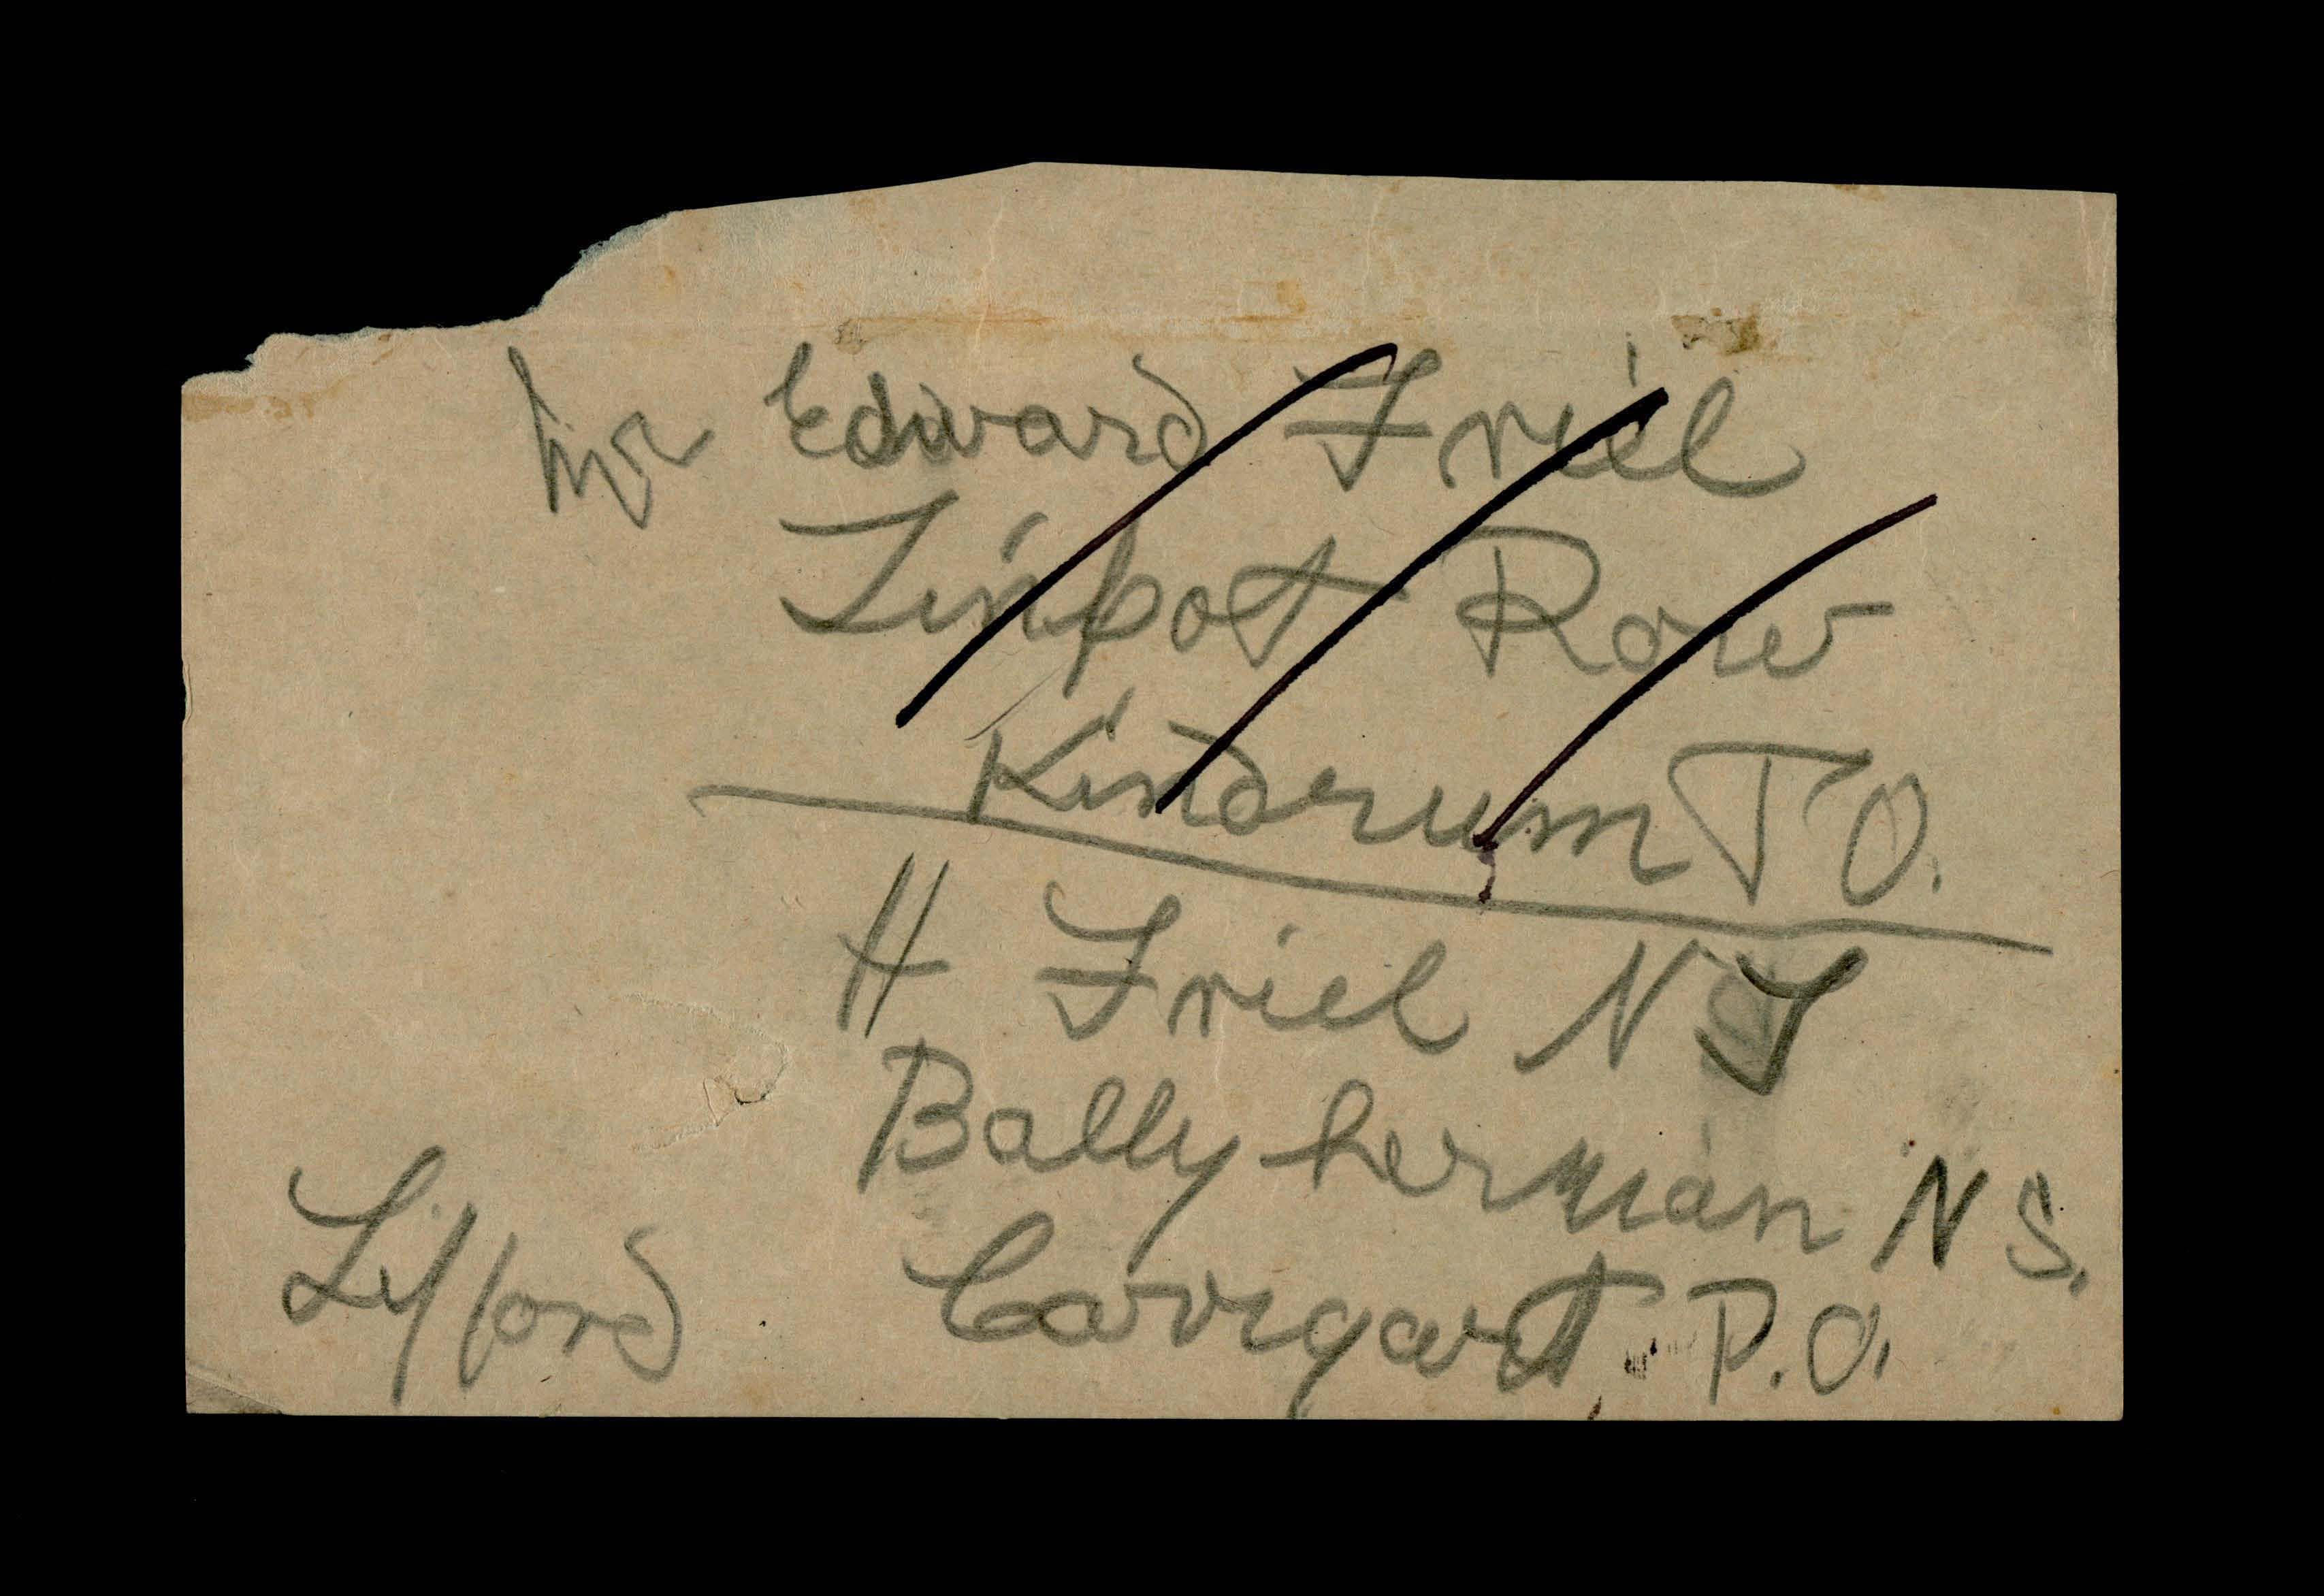 Mr Edward Friel
Linfot Row
Kindrum P O.
H Friel N T
Ballyhernan N S.
Carrigart P.O.
Lifford